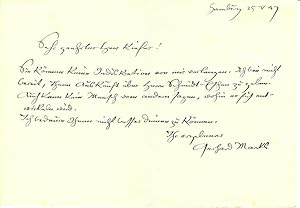 Hamburg 25 V 47
Sehr geehrter Herr Kiefer!
Sie können keine Indiskretion von mir verlangen. Ich bin nicht
bereit, Ihnen Auskunft über Herrn Schmidt-Ehm zu geben.
Auch kann kein Mensch vom andern sagen, wohin er sich ent-
wickeln wird.
Ich bedaure Ihnen nicht besser dienen zu können.
Ihr ergebener
Gerhard Marcks